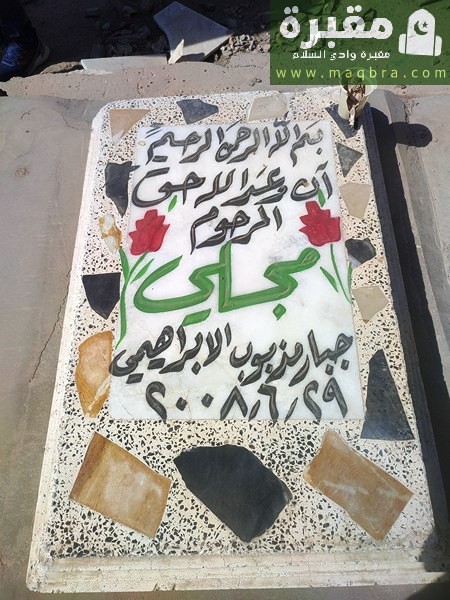 مقبرة
مقبرة وادي السلام
www.maqbra.com
بسم الله الرحمن الرحيم
ان وعد الله حق
المرحوم
مجلي
جبار مذبوب الابراهيمي
٢٠٠٨٫٦٫٢٩